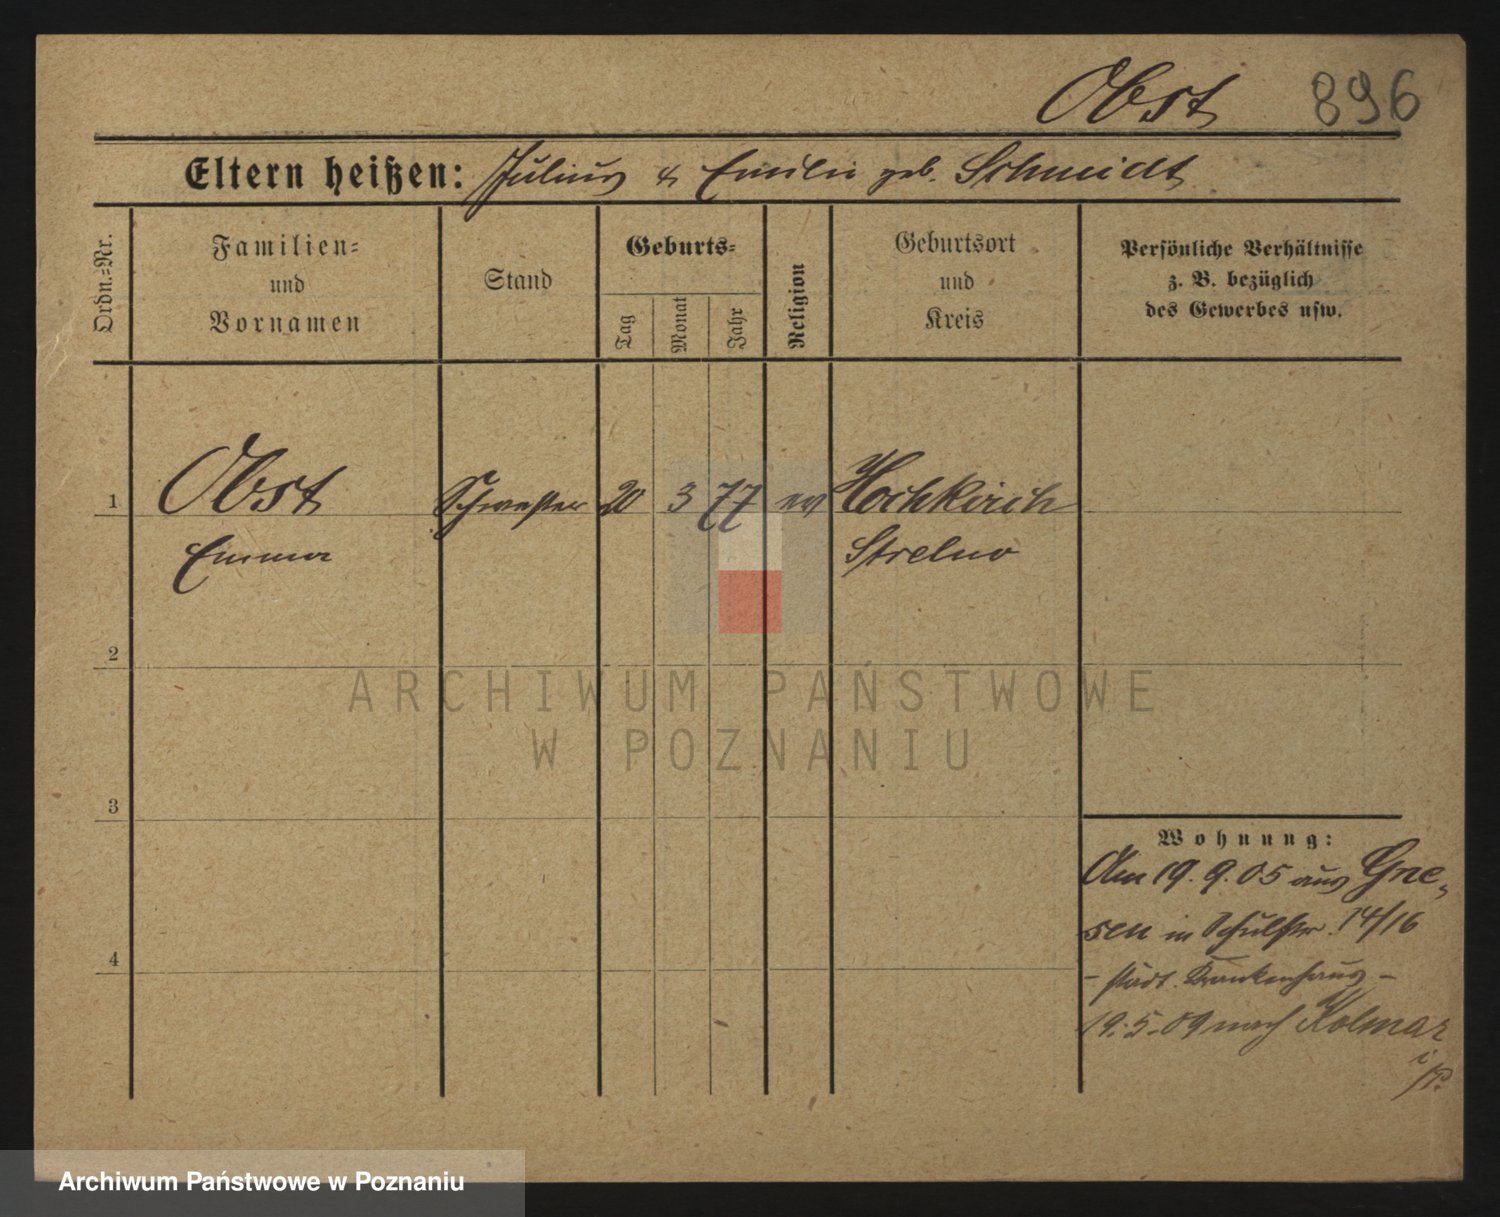 Obst 896
Eltern heißen: Julius & Emilie geb. Schmidt
Ordn.=Nr.
Familien=
und
Vornamen
Stand
Geburts=
Tag
Monat
Jahr
Religion
Geburtsort
und
Kreis
Persönliche Verhältnisse
z. B. bezüglich
des Gewerbes usw.
1 Obst Schwester 20 3 77 ev Hochkirch
Emma Strelno
2
ARCHIWUM PAŃSTWOWE
W POZNANIU
3
Wohnung:
Am 19. 9. 05 aus Gne=
sen in Schulstr. 14/16
4
- städt. Krankenhaus -
19. 5. 09 nach Kolmar
i/P.
Archiwum Państwowe w Poznaniu